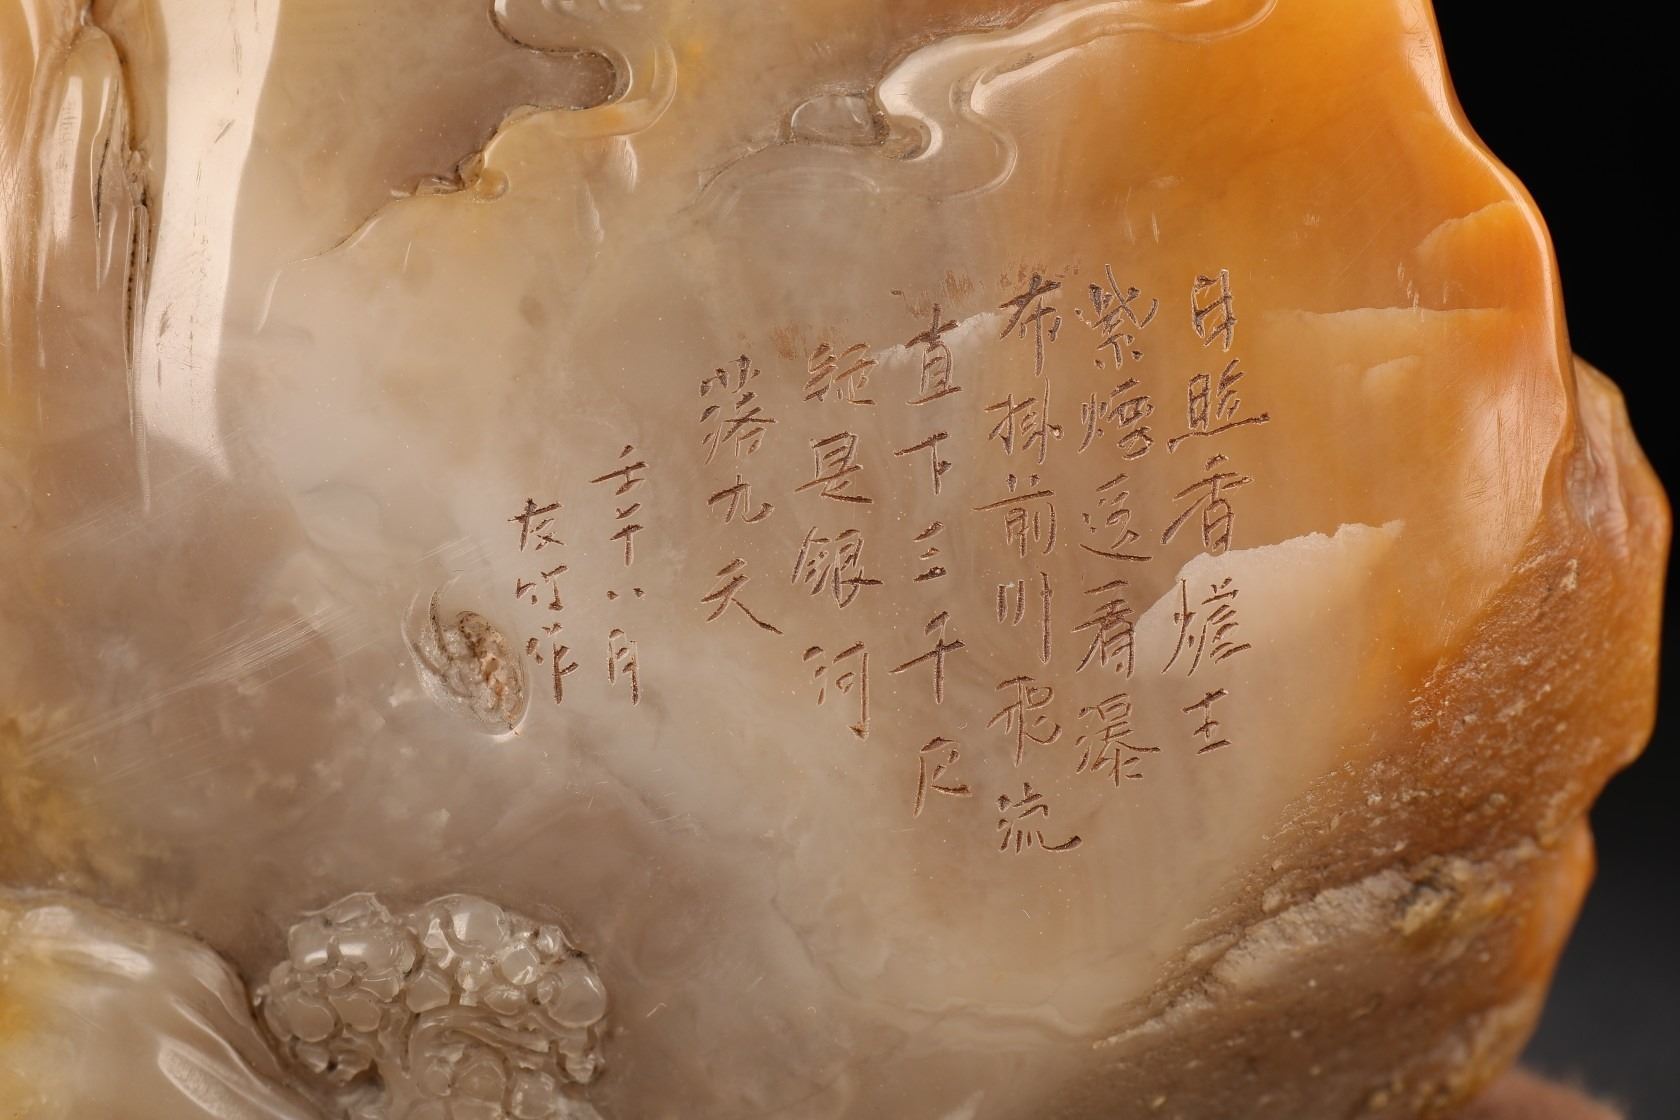 日照香爐生
紫煙遥看瀑
布掛前川飛流
直下三千尺
疑是銀河
落九天
壬午八月
友竹作